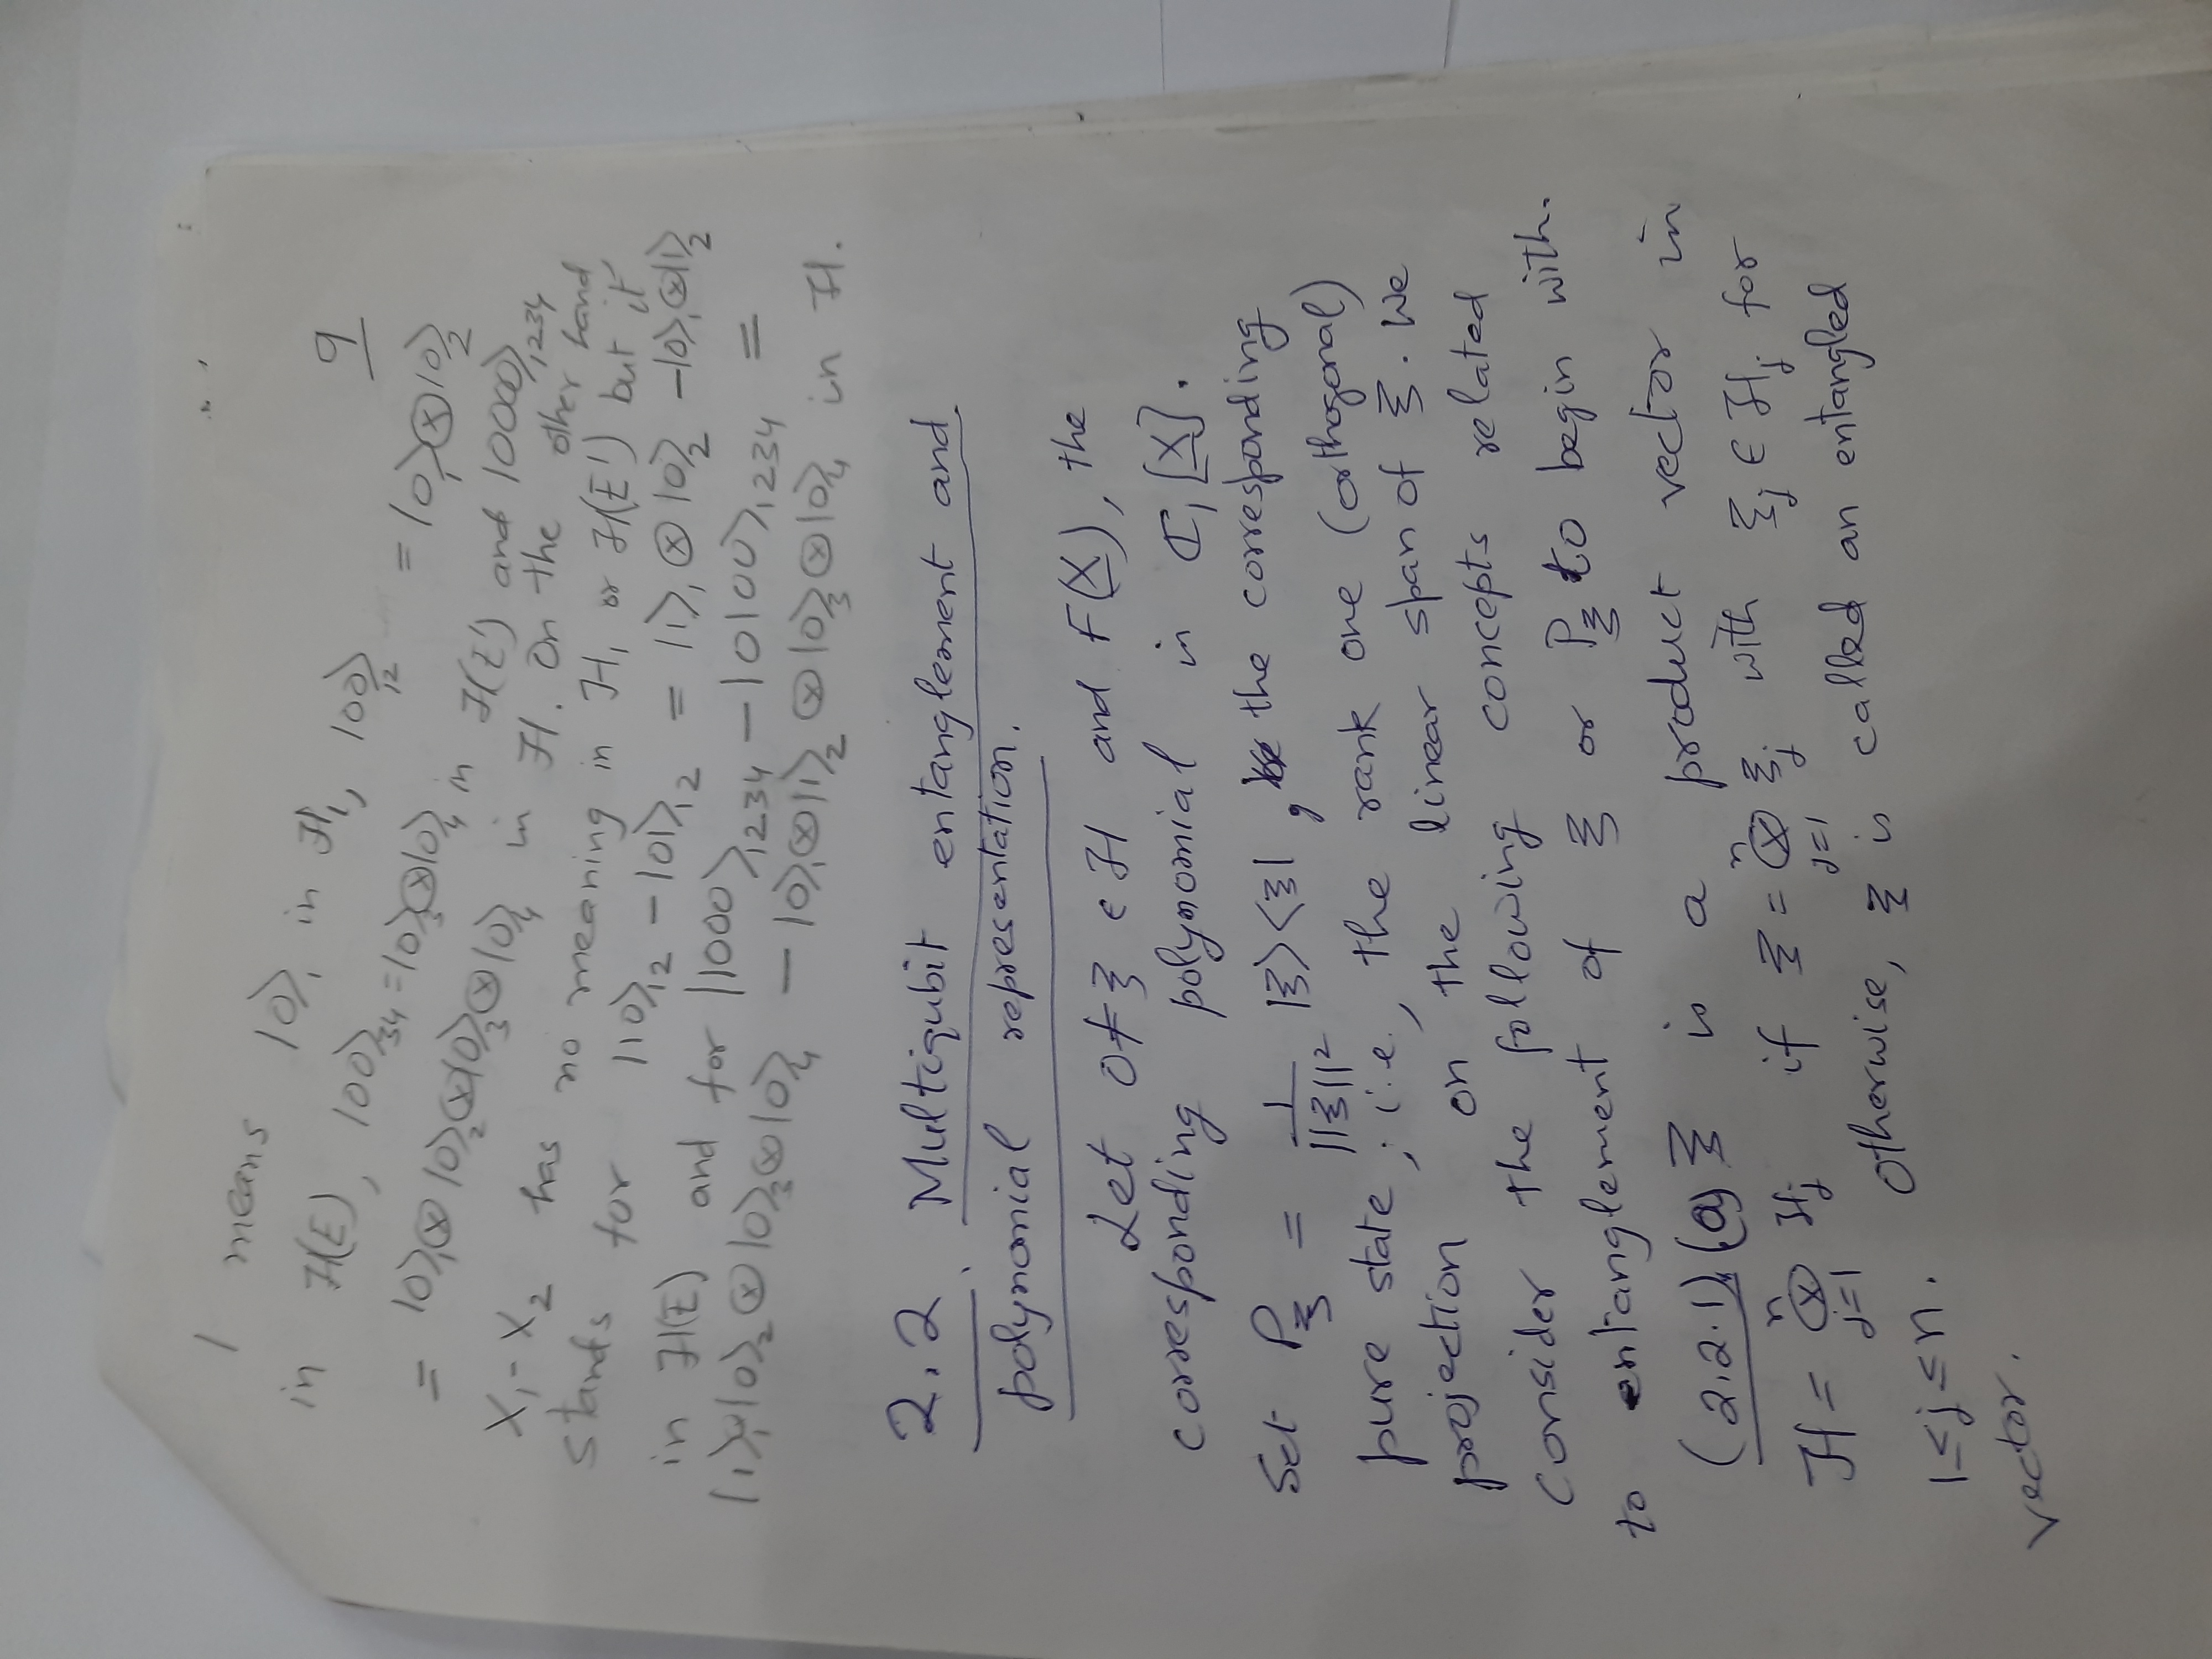 9
1 means |0⟩₁ in ℋ₁, |00⟩₁₂ = |0⟩₁⊗|0⟩₂
in ℋ(E), |00⟩₃₄ = |0⟩₃⊗|0⟩₄ in ℋ(E') and |0000⟩₁₂₃₄
= |0⟩₁⊗|0⟩₂⊗|0⟩₃⊗|0⟩₄ in ℋ. On the other hand
X₁-X₂ has no meaning in ℋ₁ or ℋ(E') but it
stands for |10⟩₁₂ - |01⟩₁₂ = |1⟩₁⊗|0⟩₂ - |0⟩₁⊗|1⟩₂
in ℋ(E) and for |1000⟩₁₂₃₄ - |0100⟩₁₂₃₄ =
|1⟩₁⊗|0⟩₂⊗|0⟩₃⊗|0⟩₄ - |0⟩₁⊗|1⟩₂⊗|0⟩₃⊗|0⟩₄ in ℋ.
2.2. Multiqubit entanglement and
polynomial representation.
Let 0≠ξ ∈ ℋ and F(X), the
corresponding polynomial in ℂ₁[X].
Set P_ξ = 1/||ξ||² |ξ⟩⟨ξ|, the corresponding
pure state; i.e., the rank one (orthogonal)
projection on the linear span of ξ. We
consider the following concepts related
to entanglement of ξ or P_ξ to begin with.
(2.2.1) (a) ξ is a product vector in
ℋ = ⊗ⁿⱼ₌₁ ℋⱼ if ξ = ⊗ⁿⱼ₌₁ ξⱼ with ξⱼ ∈ ℋⱼ for
1≤j≤n. Otherwise, ξ is called an entangled
vector.